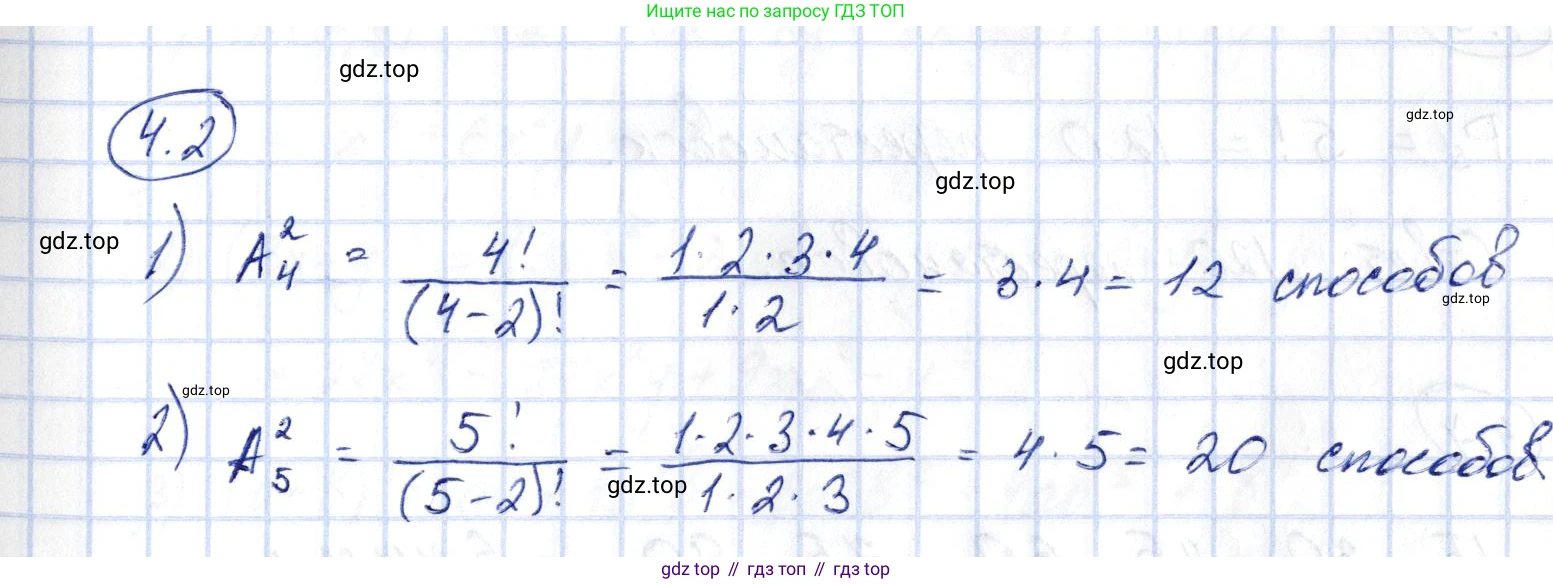 Ищите нас по запросу ГДЗ ТОП
gdz.top
gdz.top
4.2
gdz.top
gdz.top
1) A₄² = 4!/(4-2)! = 1·2·3·4/1·2 = 3·4 = 12 способов
gdz.top
gdz.top
gdz.top
2) A₅² = 5!/(5-2)! = 1·2·3·4·5/1·2·3 = 4·5 = 20 способов
gdz.top
gdz top // гдз топ // гдз top